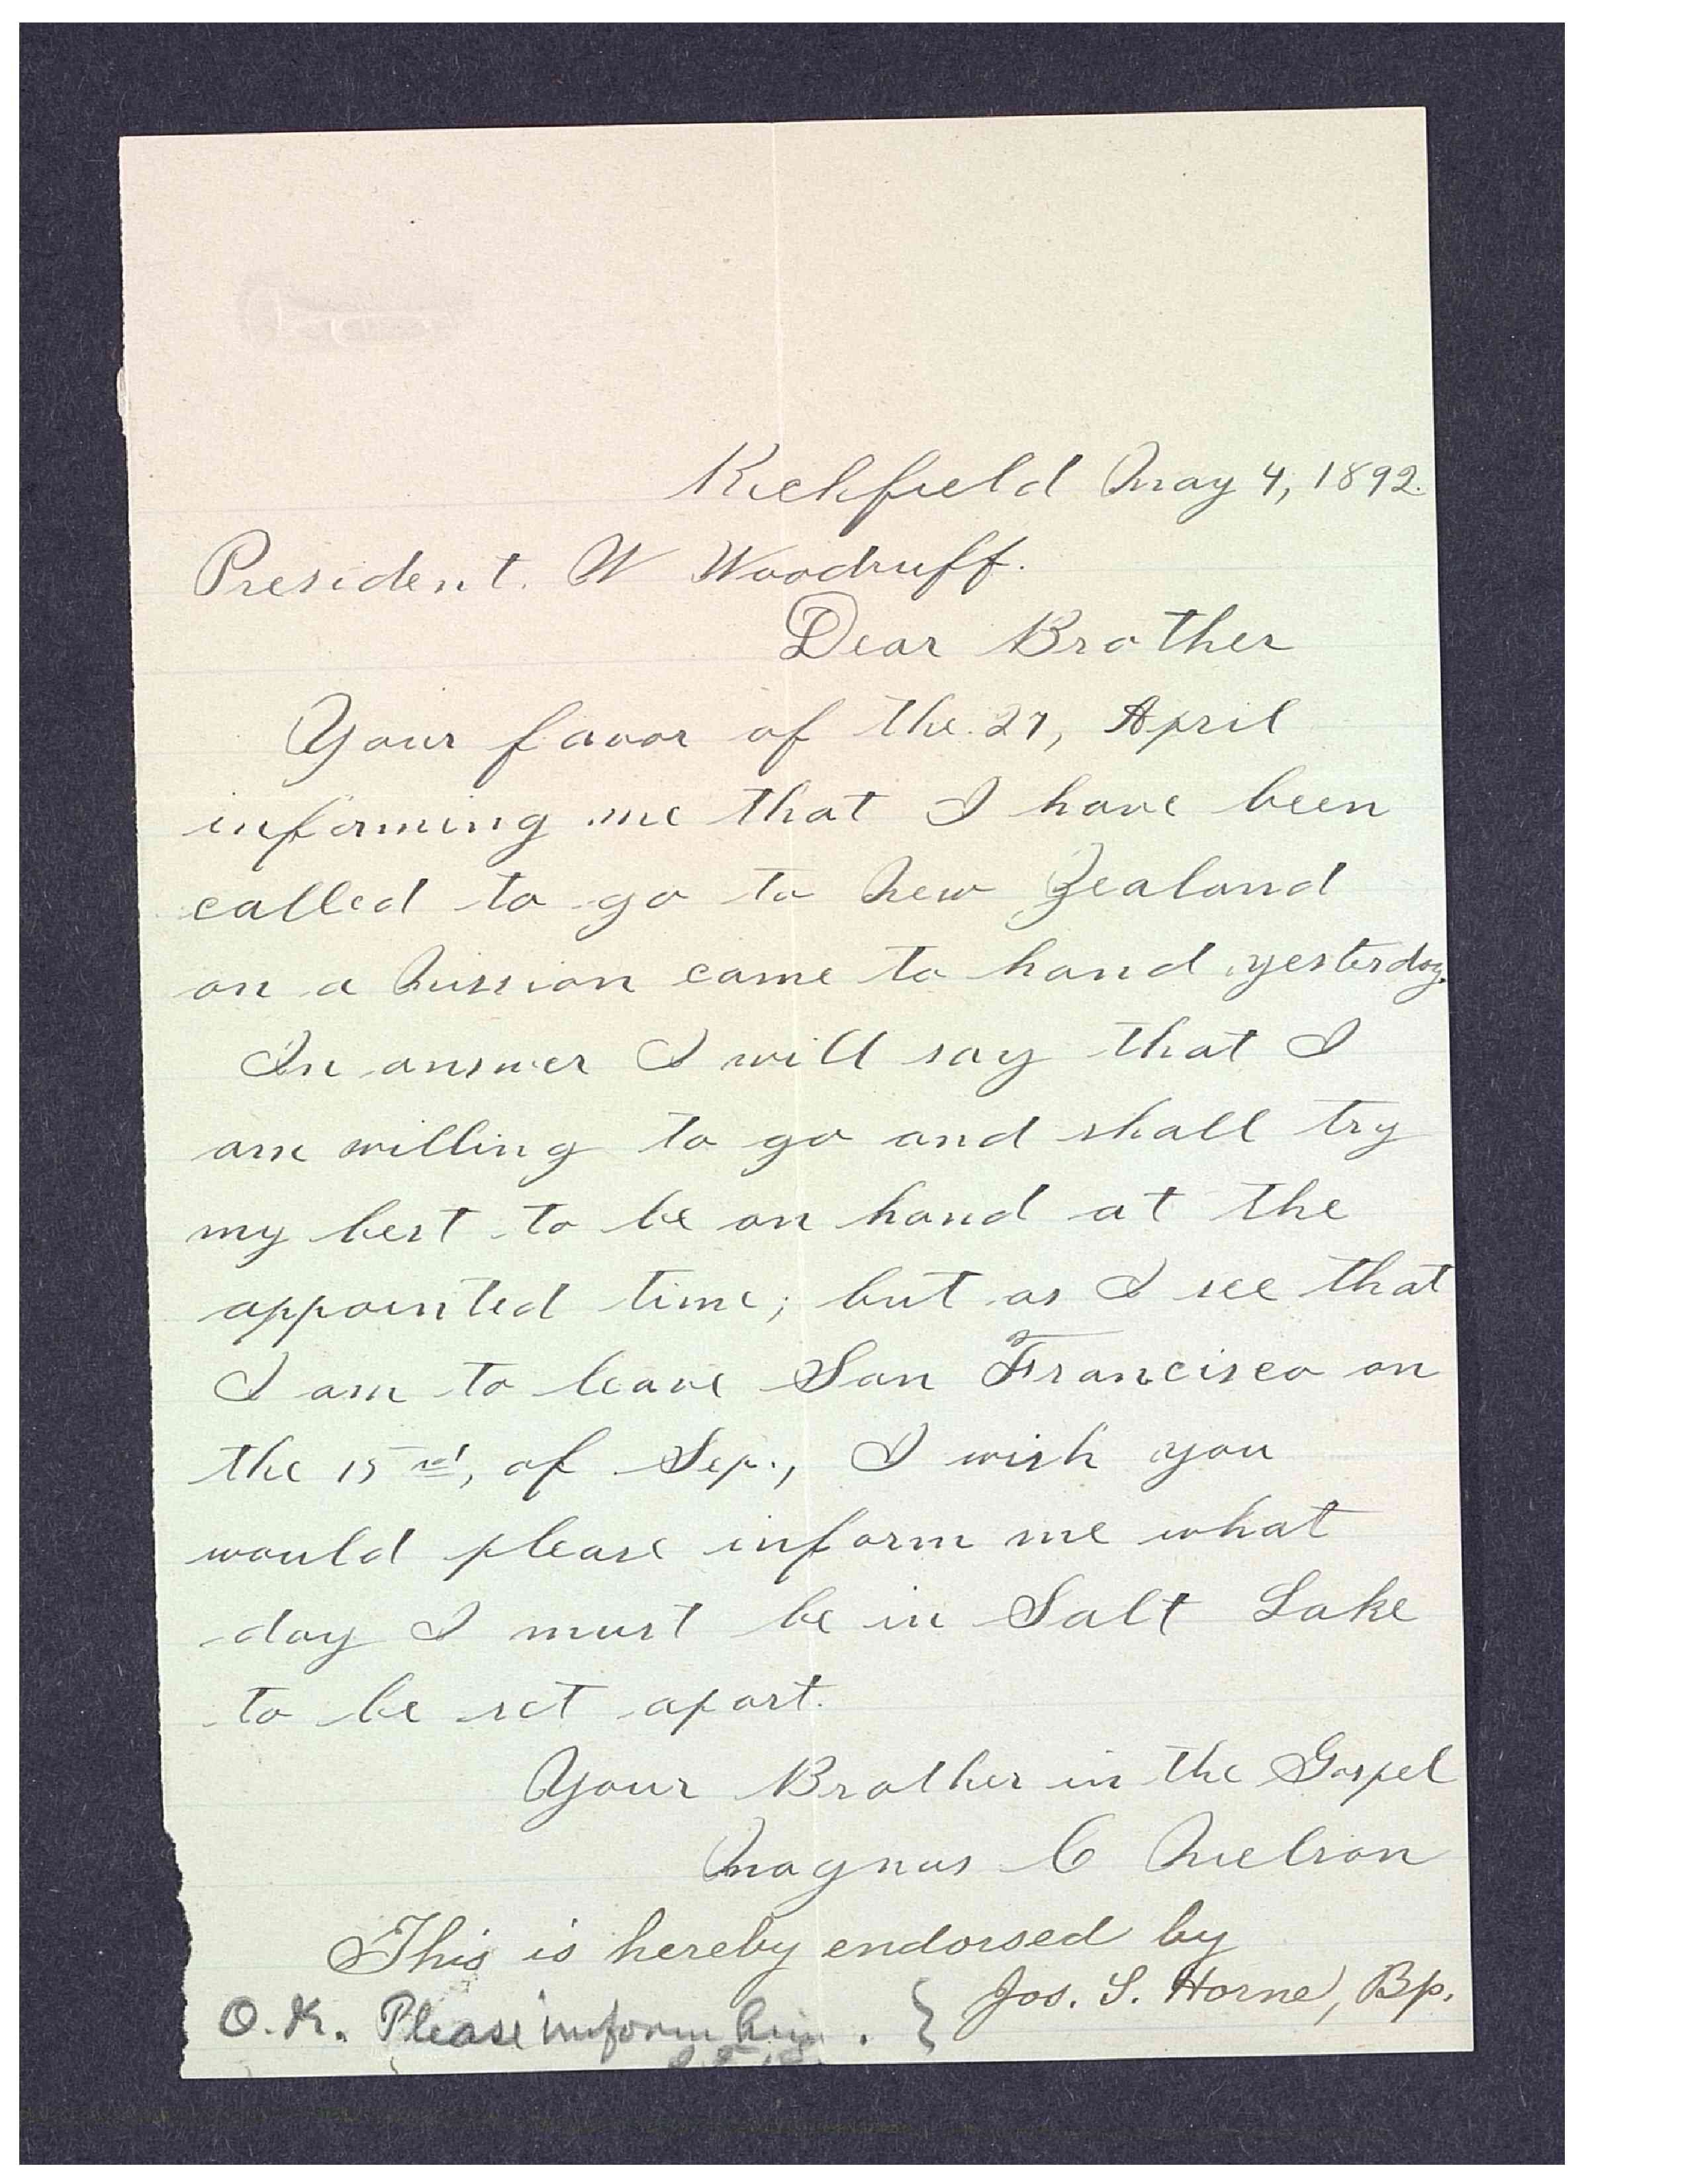 Richfield May 4, 1892.
President. W Woodruff.
Dear Brother
Your favor of the 27, April
informing me that I have been
called to go to New Zealand
on a Mission came to hand yesterday.
In answer I will say that I
am willing to go and shall try
my best to be on hand at the
appointed time; but as I see that
I am to leave San Francisco on
the 15rd, of Sep., I wish you
would please inform me what
day I must be in Salt Lake
to be set apart.
Your Brother in the Gospel
Magnus C Nielson
This is hereby endorsed by
Jos. S. Horne, Bp.
O.K. Please inform him. }